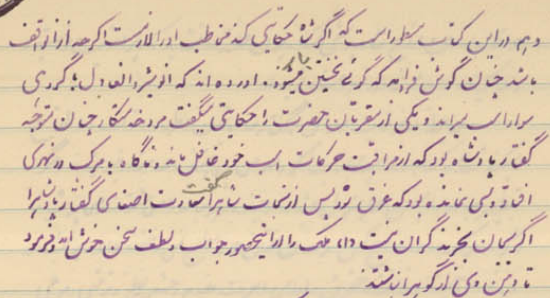 و هم در این کتاب مسطور است که اگر شاه حکایتی کند مخاطب او را لازمست اگر چه از آن واقف
باشد چنان گوش فرا دهد که گوئی نخستین بار میشنود. آورده اند که انوشیروان عادل با گروهی
سواره اسب میراند و یکی از مقربان حضرت را حکایتی میگفت مرد خدمتکار چنان متوجه
گفتار پادشاه بود که از مراقبت حرکات اسب خود غافل ماند و ناگاه با مرکب در نهری
افتاد و بسی نمانده بود که غرق شود پس از نجات شاه را گفت سعادت اصغای گفتار پادشاه را
اگر بجان بخرند گران نیست ملک را از این حضور جواب و لطف سخن خوش آمد و فرمود
تا دهن وی از گوهر انباشتند